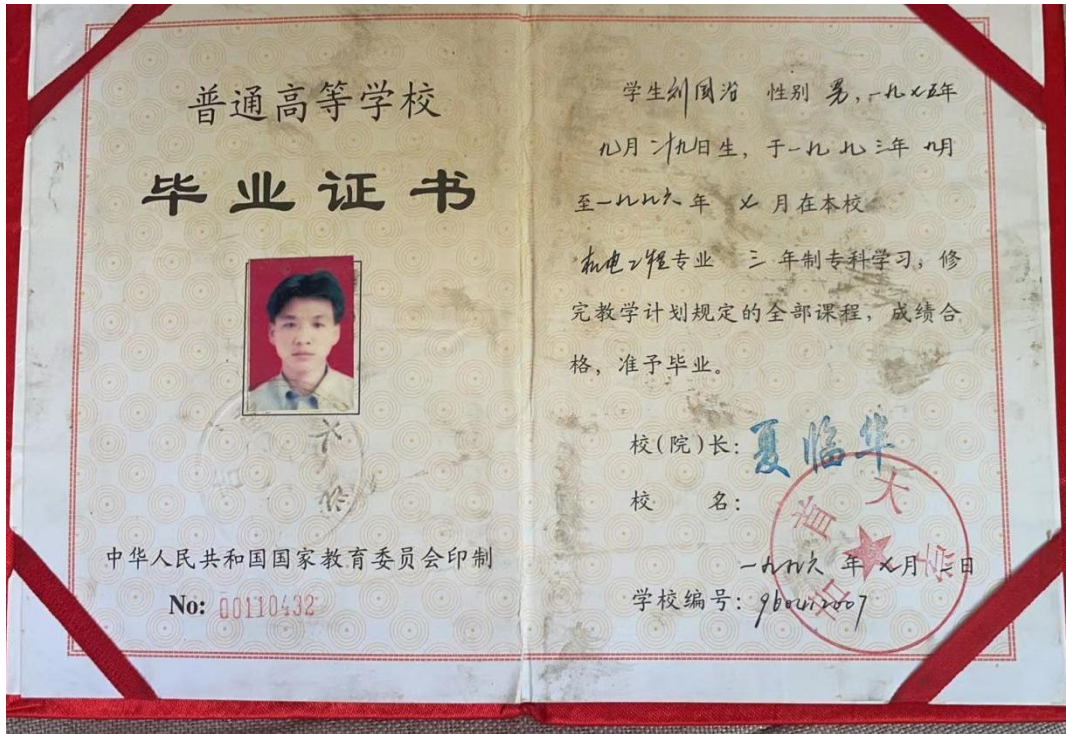 普通高等学校
毕业证书
中华人民共和国国家教育委员会印制
No: 00110432
学生刘国治 性别 男,一九七五年
九月二十九日生,于一九九三年 九月
至一九九六年 七 月在本校
机电工程专业 三 年制专科学习,修
完教学计划规定的全部课程,成绩合
格,准予毕业。
校(院)长:夏临华
校 名:
吉首大学
一九九六 年 七月 日
学校编号: